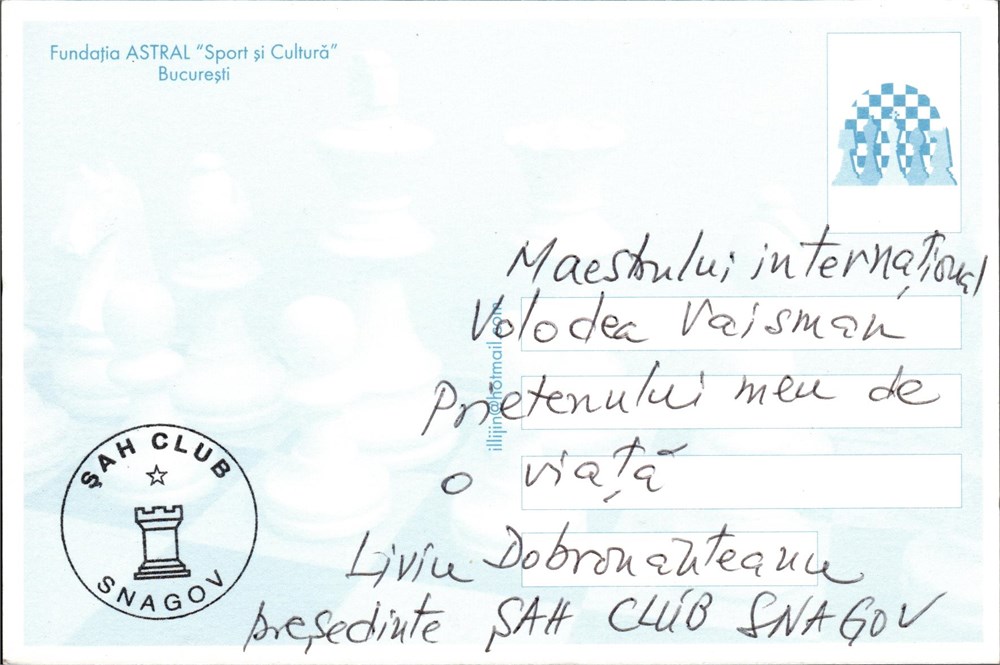 Fundația ASTRAL "Sport și Cultură"
București
Maestrului internațional
Volodea Vaisman
Prietenului meu de
o viață
Liviu Dobronauteanu
președinte ȘAH CLUB SNAGOV
illijin@hotmail.com
ȘAH CLUB
SNAGOV